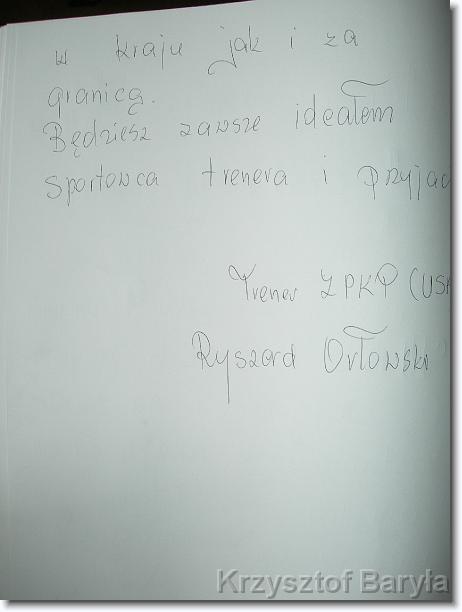 w kraju jak i za
granicą.
Będziesz zawsze ideałem
sportowca trenera i przyjac
Trener ZPKP (USA
Ryszard Orłowski
Krzysztof Baryła